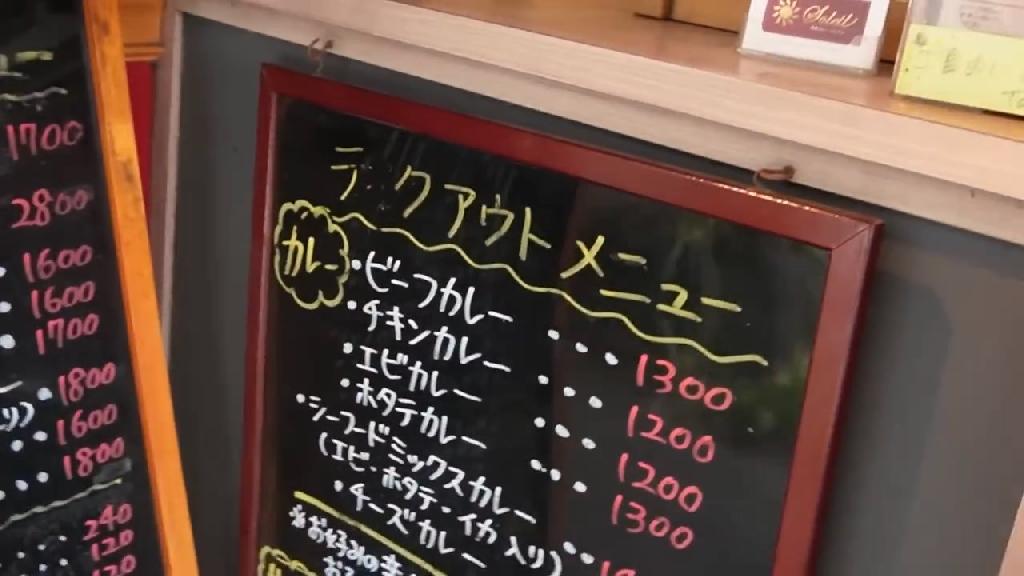 1700
2800
1600
1600
1700
1800
り)
1600
1800
240
120
120
Soleil
テ クアウト メニュー
カレー
・ビーフカレー ・・・・ 1300
・チキンカレー ・・・ 1200
・エビカレー ・・・ 1200
・ホタテカレー ・・・ 1300
・シーフードミックスカレー
(エビ・ホタテ・イカ入り)・・
・チーズカレー
※お好みの